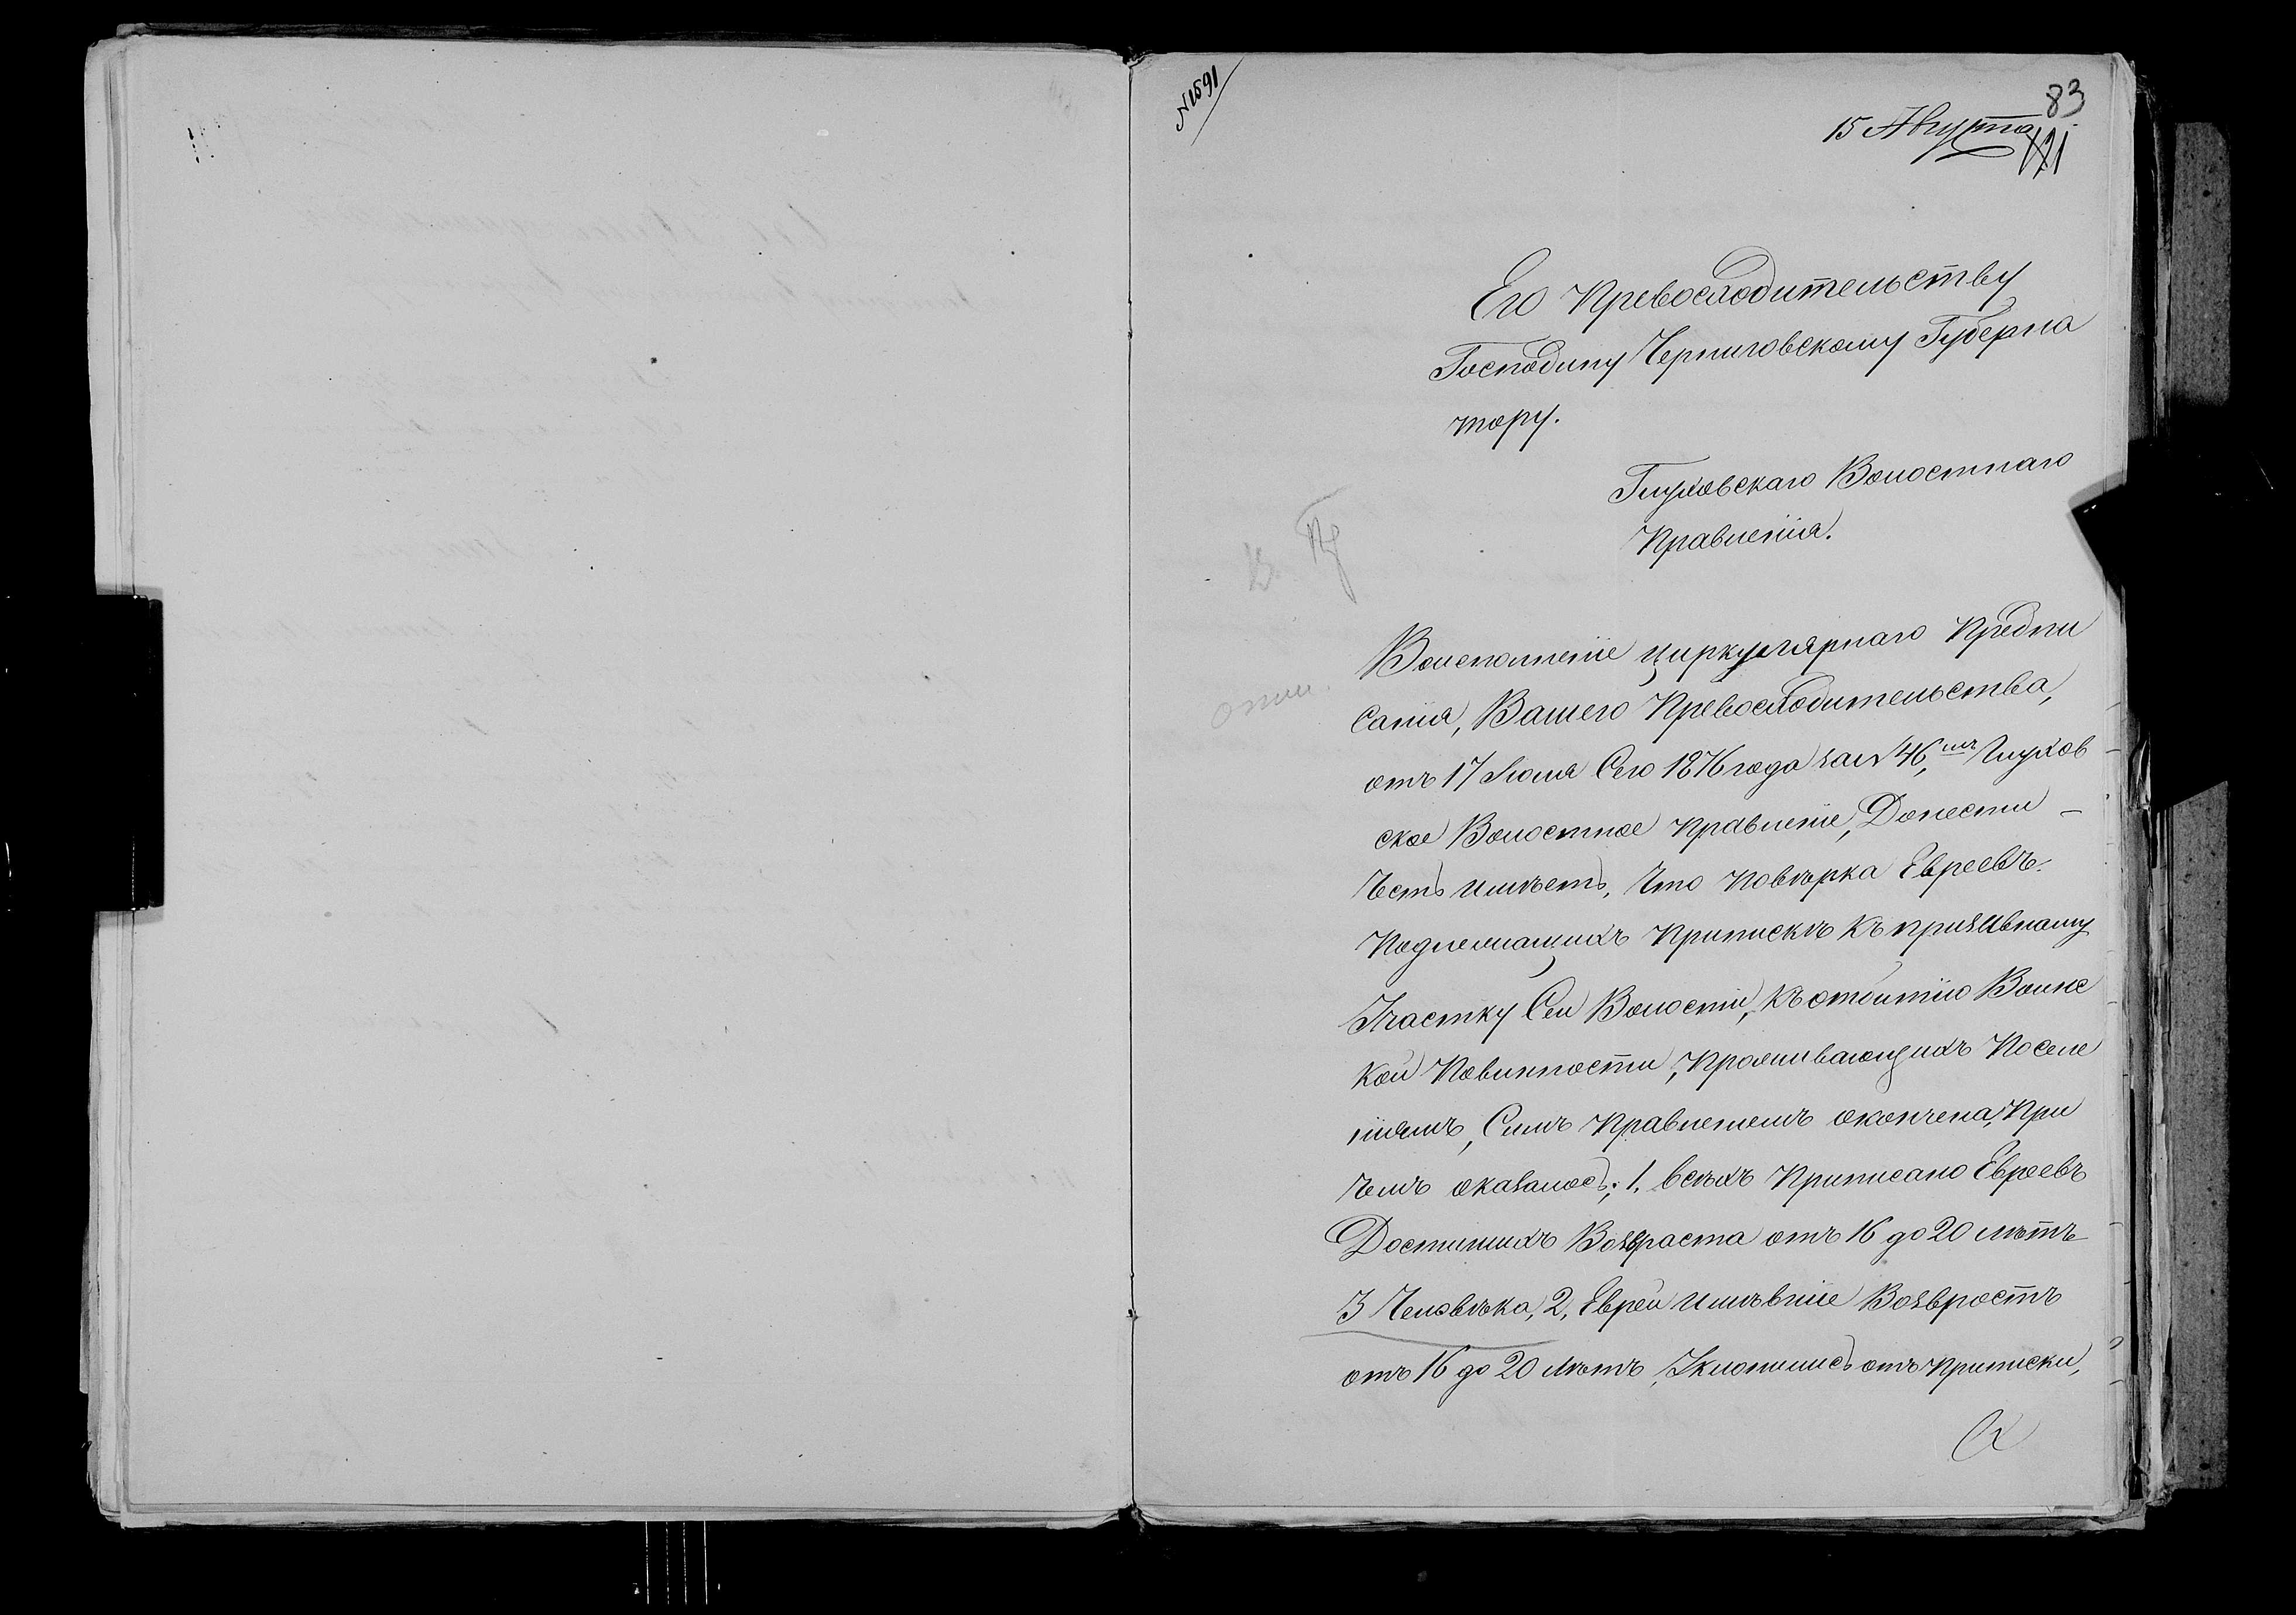 № 1591
83
15 Августа
121
Его Превосходительству
Господину Черниговскому Губерна
тору.
Глуховскаго Волостнаго
Правленія.
Воисполненіе циркулярнаго Предпи
санія, Вашего Превосходительства,
отъ 17 Іюля Сего 1876 года за № 46, Глухов
ское Волостное Правленіе, Донести
Честь имѣетъ, Что Повѣрка Евреевъ
Подлежащихъ Припискѣ Къ призывному
Участку Сей Волости, Къ отбытію Воинс
кой Повинности, Проживающихъ Поселе
ніямъ, Симъ Правленіемъ окончена, При
чемъ оказалось; 1. всѣхъ Приписано Евреевъ
Достигшихъ Возвраста отъ 16 до 20 лѣтъ
3 Человѣка, 2, Евреи имѣвшіе Возврастъ
отъ 16 до 20 Лѣтъ, Уклонились отъ Приписки,